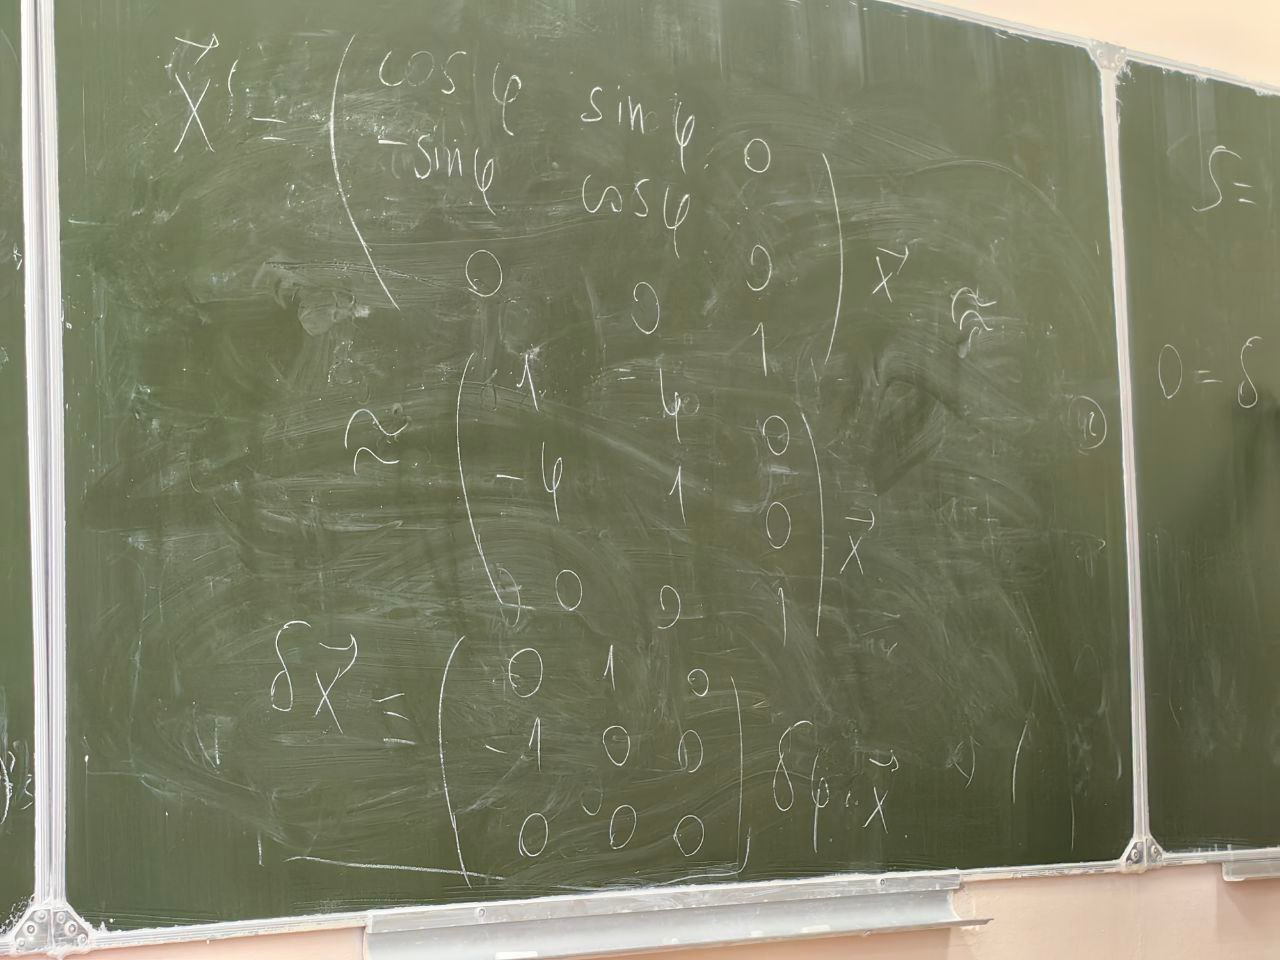 x⃗' = ( cos φ sin φ 0
-sin φ cos φ 0
0 0 1 ) x⃗ ≈
≈ ( 1 -φ 0
-φ 1 0
0 0 1 ) x⃗
δx⃗ = ( 0 1 0
-1 0 0
0 0 0 ) δφ · x⃗
S =
0 = δ